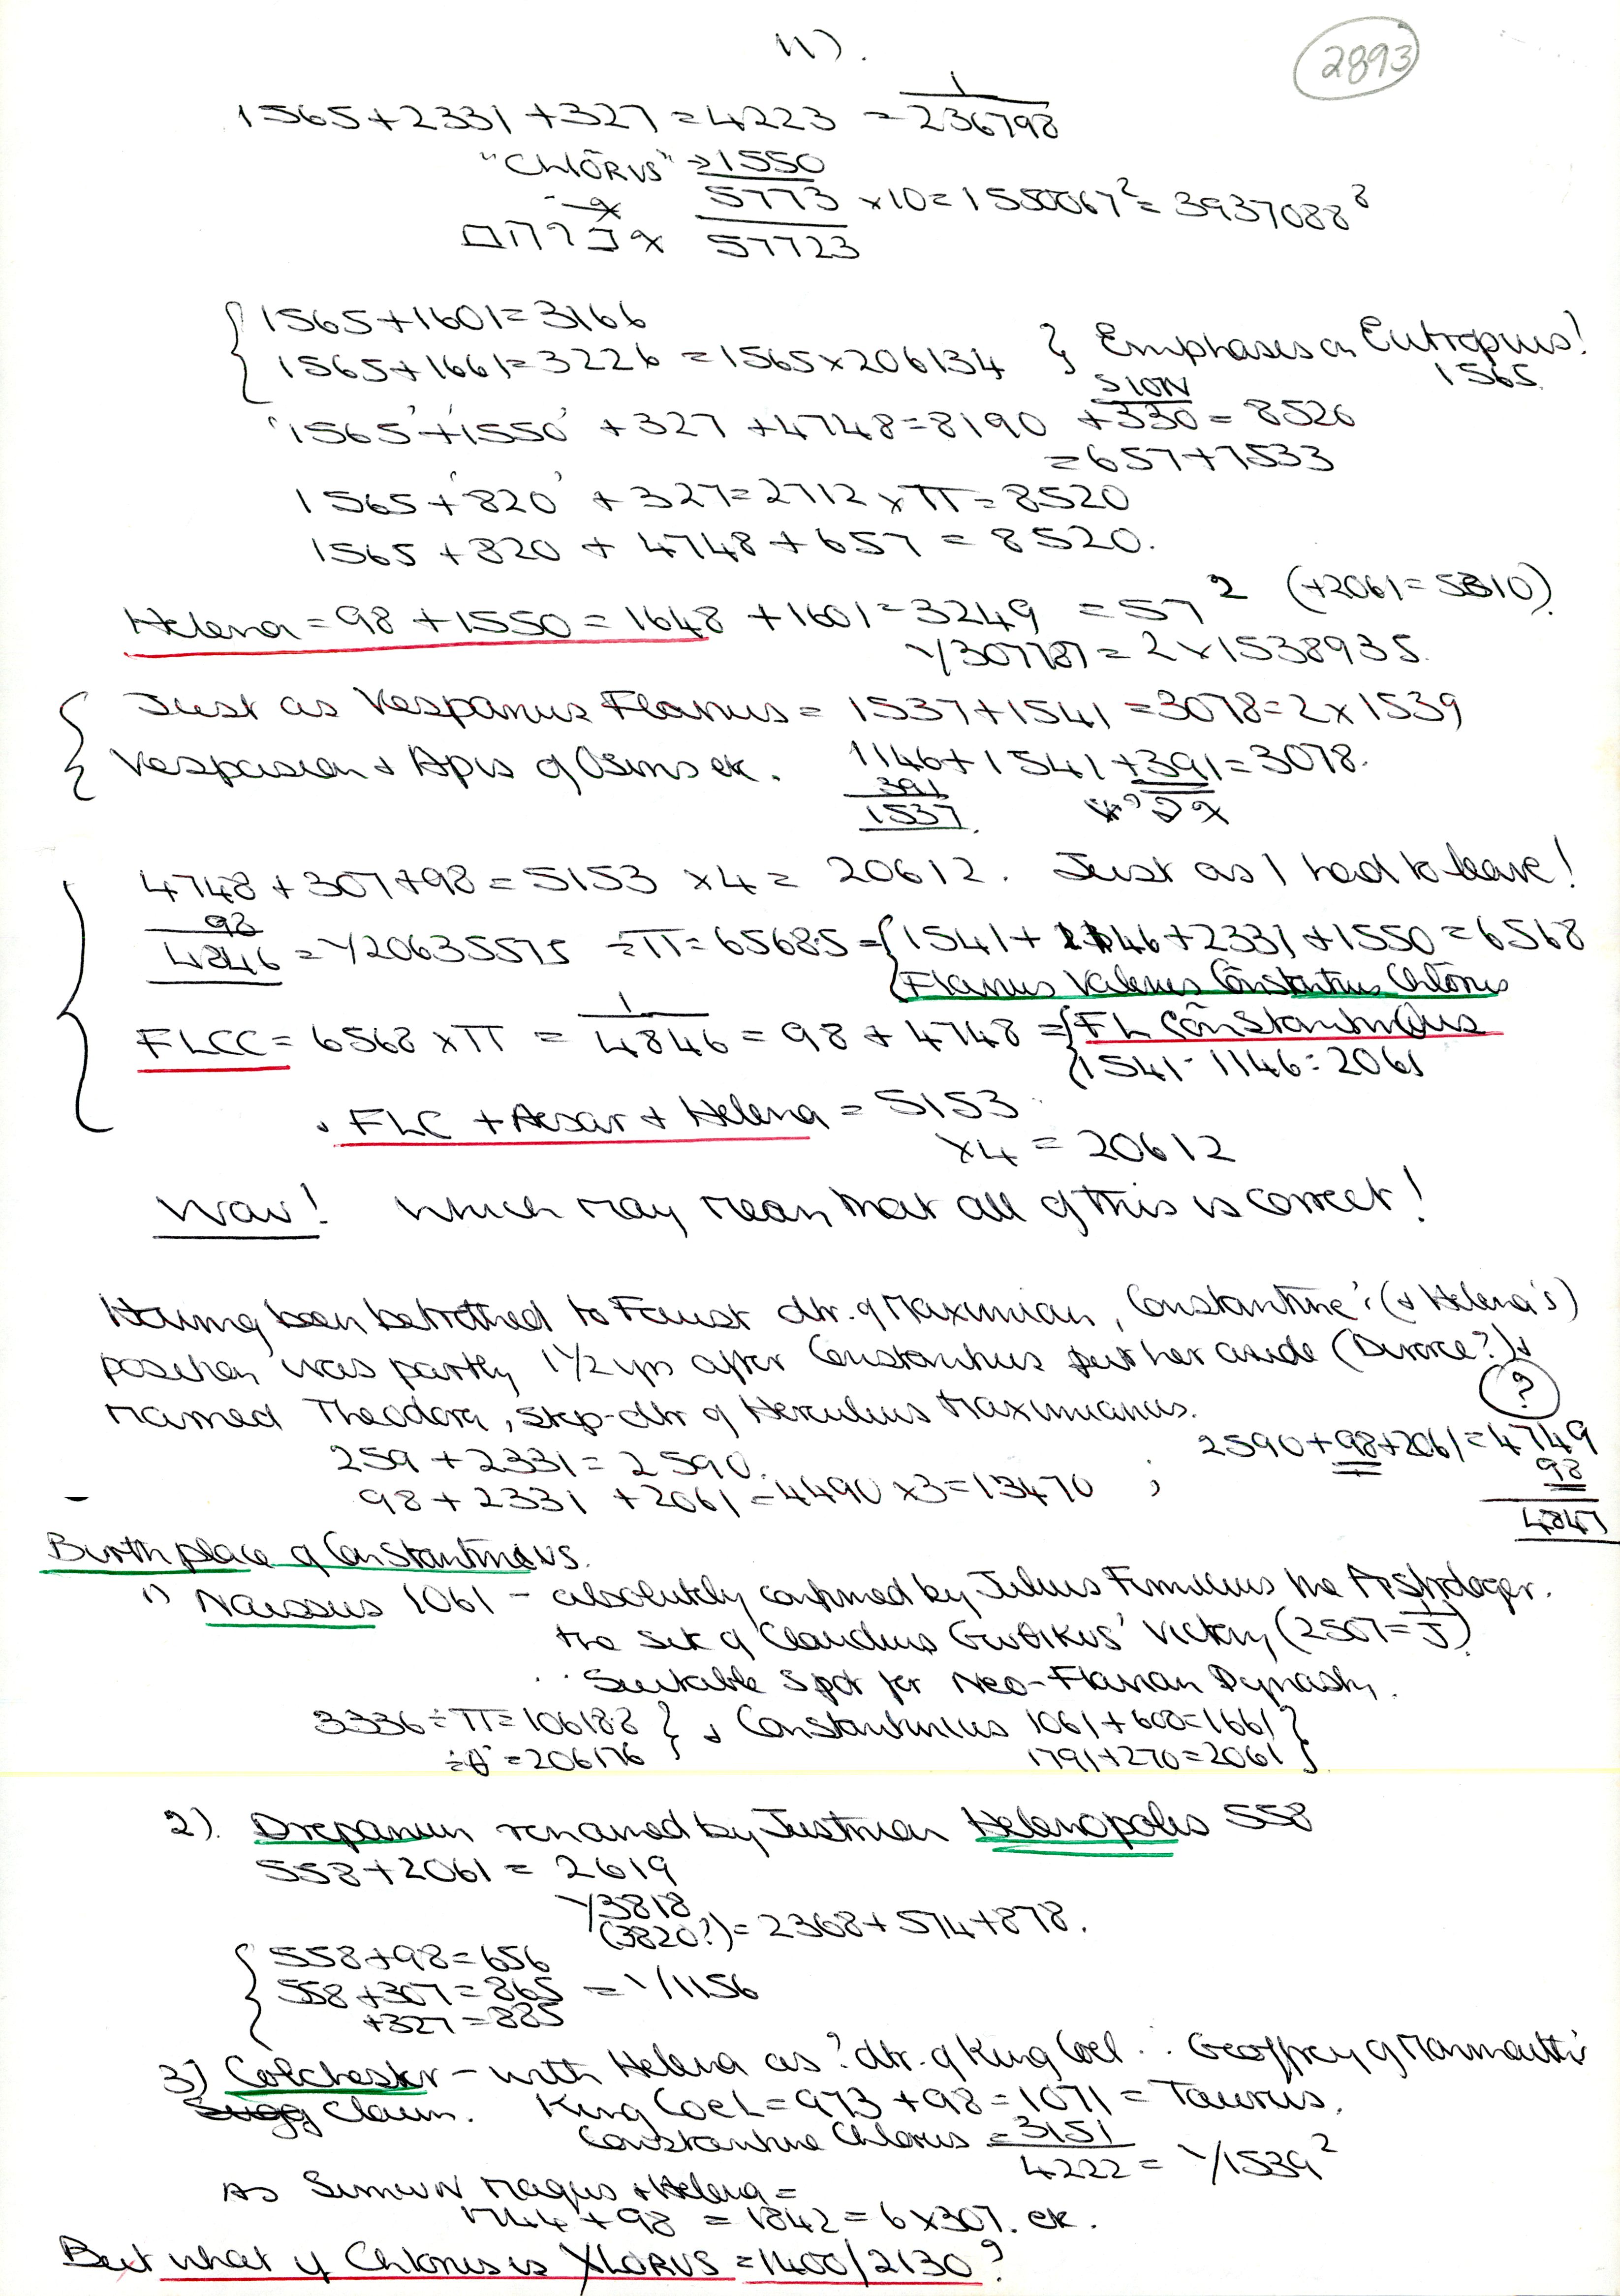 11).
2893
1565+2331+327=4223 = 1/236798
"CHLŌRUS" → 1550
5773 ×10=1550067²= 3937088⁸
57723
1565+1601=3166
1565+1661=3226 =1565×206134 } Emphases on Eutropius!
1565
'1565'+'1550' +327 +4748=8190 +330 = 8520
SION
=657+7533
1565+'820' +327=2712 ×π=8520
1565+820 + 4748+657 = 8520.
Helena=98+1550=1648 +1601=3249 =57² (+2061=5310)
1/307787 = 2×1538935.
Just as Vespanus Flavius = 1537+1541 =3078=2×1539
Vespasian & Apis of Osiris etc. 1146+1541+391=3078.
391
1537
4748+307+98=5153 ×4= 20612. Just as I had to leave!
98
4846 = 1/20635575 ÷π=65685={1541+1146+2331+1550=6568
Flavius Valerius Cōnstantius Chlōrus
FLCC=6568×π = 1/4846 =98+4748 ={FL Cōnstantinus
1541-1146=2061
& FLC + Aesar + Helena = 5153
×4 = 20612
Wow! Which may mean that all of this is correct!
Having been betrothed to Faust dtr. of Maximian, Constantine's (& Helena's)
position was partly 1½ yrs after Constantius put her aside (Divorce?) &
married Theodora, step-dtr of Herculius Maximianus.
?
259+2331=2590.
2590+98+2061=4749
98+2331+2061=4490×3=13470 ;
98
4847
Birthplace of Constantinus.
1) Naissus 1061 - absolutely confirmed by Julius Firmilius the Astrologer.
the site of Claudius Gothikus' Victory (2507=
∴ Suitable Spot for Neo-Flavian Dynasty.
3336÷π=10618.8 } & Constantinius 1061+600=1661}
÷θ=206176 } 1791+270=2061}
2). Drepanum renamed by Justinian Helenopolis 558
558+2061= 2619
1/3818
(3820?)=2368+574+878.
558+98=656
558+307=865 = 1/1156
+327=885
3) Colchester - with Helena as? dtr. of King Coel ∴ Geoffrey of Monmouth's
claim. King Coel=973+98=1071= Taurus.
Constantine Chlorus = 3151
4222= 1/1539²
As Simon Magus & Helena =
1744+98 =1842=6×307. etc.
But what if Chlorus is XLORUS=1400/2130?